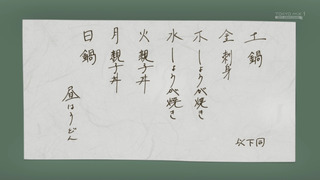 日 鍋
月 親子丼
火 親子丼
水 しょうが焼き
木 しょうが焼き
金 刺身
土 鍋
昼はうどん
以下同